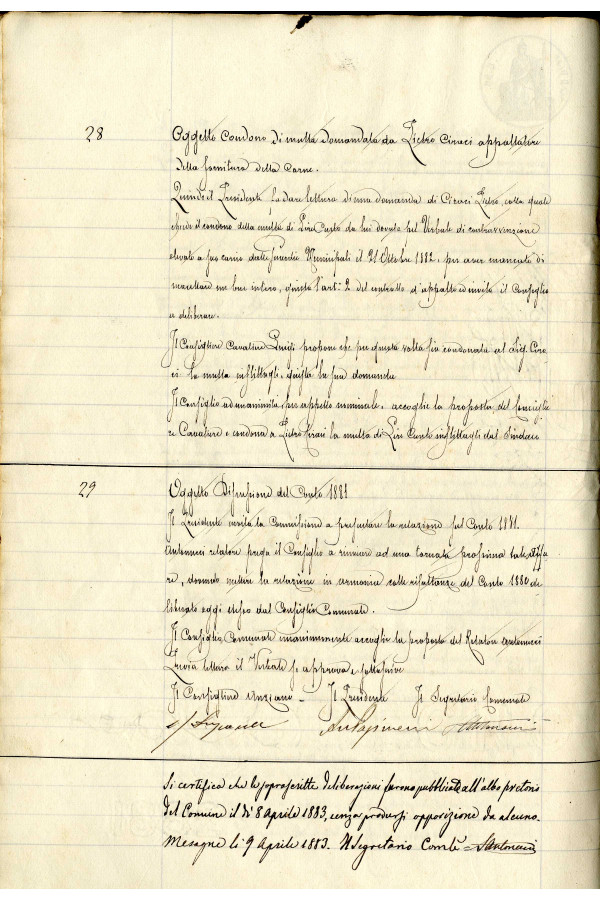 28
Oggetto Condono di multa domandata da Pietro Ciraci appaltatore
della fornitura della carne.
Quindi il Presidente fa dare lettura di una domanda di Ciraci Pietro, colla quale
chiede il condono della multa di Lire Cento da lui dovute pel Verbale di contravvenzione
elevato a suo carico dalle Guardie Municipali il 21 Ottobre 1882, per aver mancato di
macellare un bue intero, giusta l'art.º 2 del contratto d'appalto ed invita il Consiglio
a deliberare.
Il Consigliere Cavaliere Luigi propone che per questa volta sia condonata al Sig. Cira-
ci la multa inflittagli, giusta la sua domanda
Il Consiglio ad unanimità per appello nominale, accoglie la proposta del Consiglie-
re Cavaliere e condona a Pietro Ciraci la multa di Lire Cento inflittagli dal Sindaco
29
Oggetto Discussione del Conto 1881
Il Presidente invita la Commissione a presentare la relazione sul Conto 1881.
Antonucci relatore prega il Consiglio a rinviare ad una tornata prossima tale affa-
re, dovendo mettere la relazione in armonia colle risultanze del Conto 1880 de-
liberato oggi stesso dal Consiglio Comunale.
Il Consiglio Comunale unanimemente accoglie la proposta del Relatore Antonucci
Previa lettura il Verbale si approva e sottoscrive
Il Consigliere Anziano Il Presidente Il Segretario Comunale
Si certifica che le soprascritte deliberazioni furono pubblicate all'albo pretorio
del Comune il dì 8 Aprile 1883, senza prodursi opposizione da alcuno.
Mesagne li 9 Aprile 1883. Il Segretario Com.le